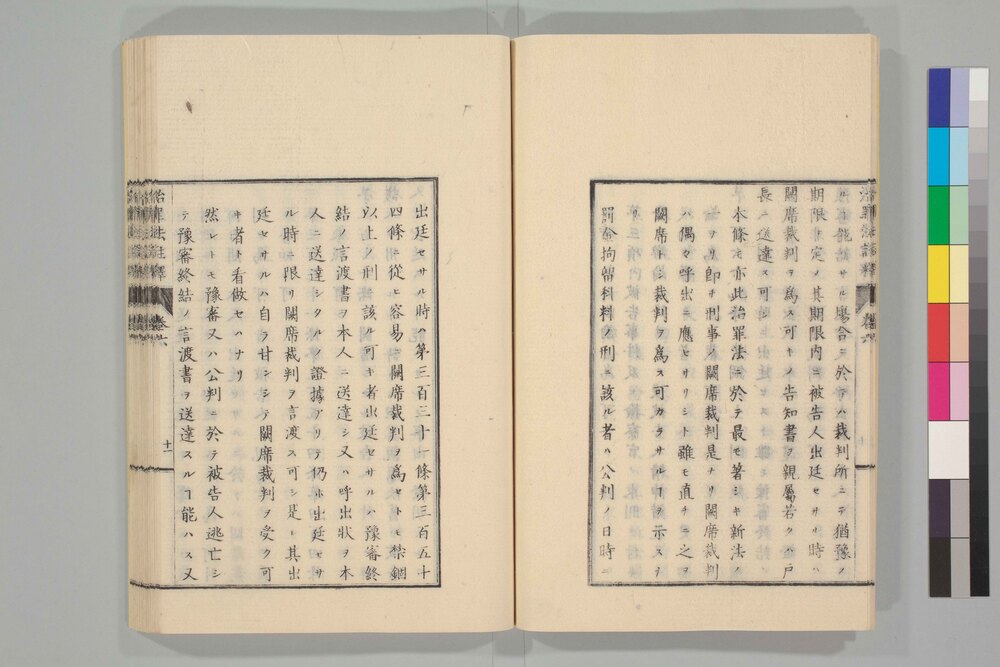 ル能ハサル塲合ニ於テハ裁判所ニテ猶豫ノ
期限ヲ定メ其期限内ニ被告人出廷セサル時ハ
闕席裁判ヲ爲ス可キノ告知書ヲ親屬若クハ戸
長ニ送達ス可シ
本條モ亦此治罪法ニ於テ最モ著シキ新法ノ
一ナリ即チ刑事ノ闕席裁判是ナリ闕席裁判
ハ偶々呼出ニ應セサリシト雖モ直チニ之ヲ
闕席トシ裁判ヲ爲ス可カラサルヿヲ示スナ
リ
罰金拘留科料ノ刑ニ該ル者ハ公判ノ日時ニ
出廷セサル時ハ第三百三十一條第三百五十
四條ニ從ヒ容易ニ闕席裁判ヲ爲セトモ禁錮
以上ノ刑ニ該ル可キ者出廷セサルハ豫審終
結ノ言渡書ヲ本人ニ送達シ又ハ呼出狀ヲ本
人ニ送達シタルノ證據アリテ仍ホ出廷セサ
ル時ニ限リ闕席裁判ヲ言渡ス可シ是レ其出
廷セサルハ自ラ甘ンシテ闕席裁判ヲ受ク可
キ者ト看做セハナリ
然レトモ豫審又ハ公判ニ於テ被告人逃亡シ
テ豫審終結ノ言渡書ヲ送達スルヿ能ハス又
治罪法註釋
卷六
十一